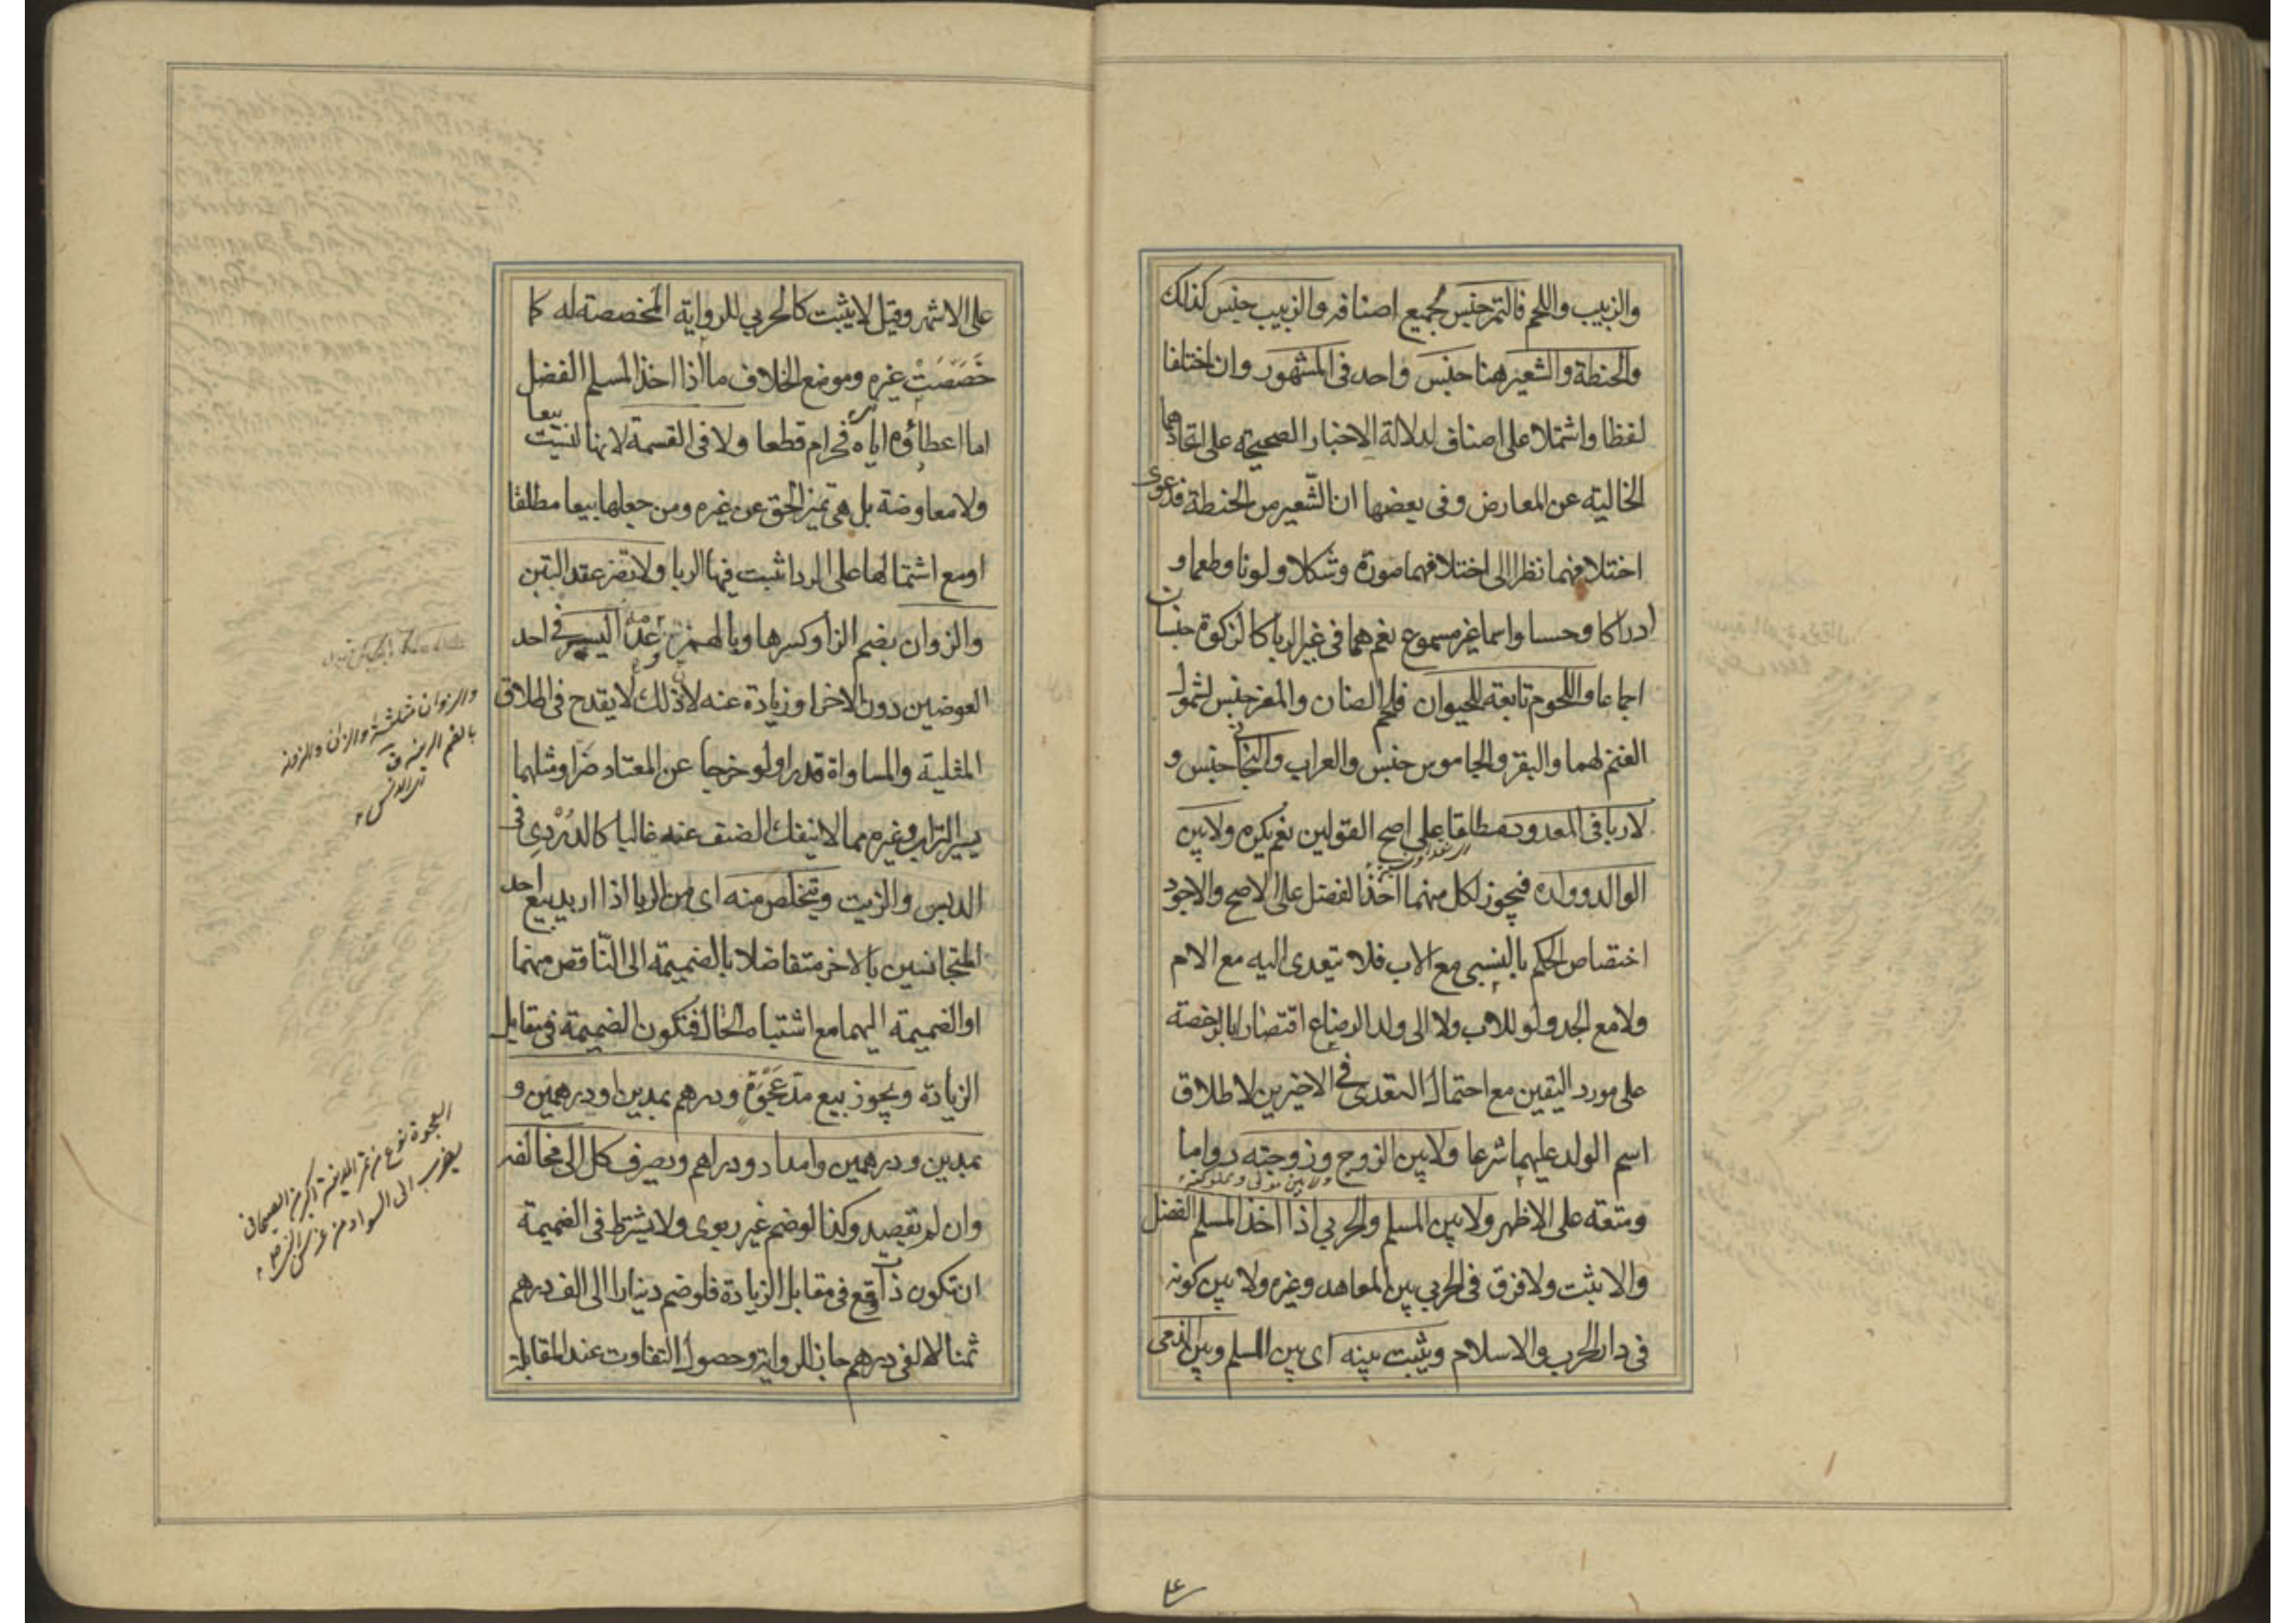 والزبيب واللحم فالتمر جنس لجميع اصنافه والزبيب جنس كذلك
والحنطة والشعير هنا جنس واحد فى المشهور وان اختلفا
لفظا واشتملا على اصناف لدلالة الاخبار الصحيحة على اتحادهما
الخالية عن المعارض وفى بعضها ان الشّعير من الحنطة فدعوى
اختلافهما نظرا الى اختلافهما صورة وشكلا ولونا وطعما و
ادراكا وحسا واسما غير مسموع نعم هما فى غير الربا كالزكوة جنسان
اجماعا واللحوم تابعة للحيوان فلحم الضان والمعز جنس لشمول
الغنم لهما والبقر والجاموس جنس والعراب والبخاتى جنس و
لا ربا فى المعدود مطلقا على اصح القولين نعم يكره ولا بين
الوالد وولده فيجوز لكل منهما اخذ الفضل على الاصح والاجود
اختصاص الحكم بالنسبى مع الاب فلا تتعدى اليه مع الام
ولا مع الجد ولو للاب ولا الى ولد الرضاع اقتصارا بالرخصة
على مورد اليقين مع احتمال التعدى فى الاخيرين لاطلاق
اسم الولد عليهما شرعا ولا بين الزوج وزوجته دواما
ولا بين مولى ومملوكه
ومتعة على الاظهر ولا بين المسلم والحربي اذا اخذ المسلم الفضل
والا يثبت ولا فرق فى الحربي بين المعاهد وغيره ولا بين كونه
فى دار الحرب والاسلام ويثبت بينه اى بين المسلم وبين الذمى
على الاشهر وقيل لا يثبت كالحربي للرواية المخصصة له كما
خَصَّصَتْ غيره وموضع الخلاف ما اذا اخذ المسلم الفضل
اما اعطاؤه اياه فحرام قطعا ولا فى القسمة لانها ليست بيعا
ولا معاوضة بل هى تميز الحق عن غيره ومن جعلها بيعا مطلقا
او مع اشتمالها على الرد اثبت فيها الربا ولا تضر عقد التبن
والزوان بضم الزا وكسرها وبالهمز وعدمه اليسير فى احد
العوضين دون الاخر او زيادة عنه لان ذلك لا يقدح فى اطلاق
المثلية والمساواة قدرا ولو خرجا عن المعتاد ضرا ومثلهما
يسير التراب وغيره مما لا ينفك الصنف عنه غالبا كالدُرْدِى فى
الدبس والزيت ويتخلص منه اى من الربا اذا اريد بيع احد
المتجانسين بالاخر متفاضلا بالضميمة الى النّاقص منهما
او الضميمة اليهما مع اشتباه الحال فتكون الضميمة فى مقابل
الزيادة ويجوز بيع مد عَجْوَة ودرهم بمدين او درهمين و
بمدين ودرهمين وامداد ودراهم ويصرف كل الى مخالفه
وان لم يقصد وكذا لو ضم غير ربوى ولا يشترط فى الضميمة
ان تكون ذات وقع فى مقابل الزيادة فلو ضم دينارا الى الف درهم
ثمنا لالفى درهم جاز للرواية وحصول التفاوت عند المقابلة
والزوان مثلثة
العجوة نوع من تمر المدينة اكبر من الصيحانى
يضرب الى السواد من غرس النبى